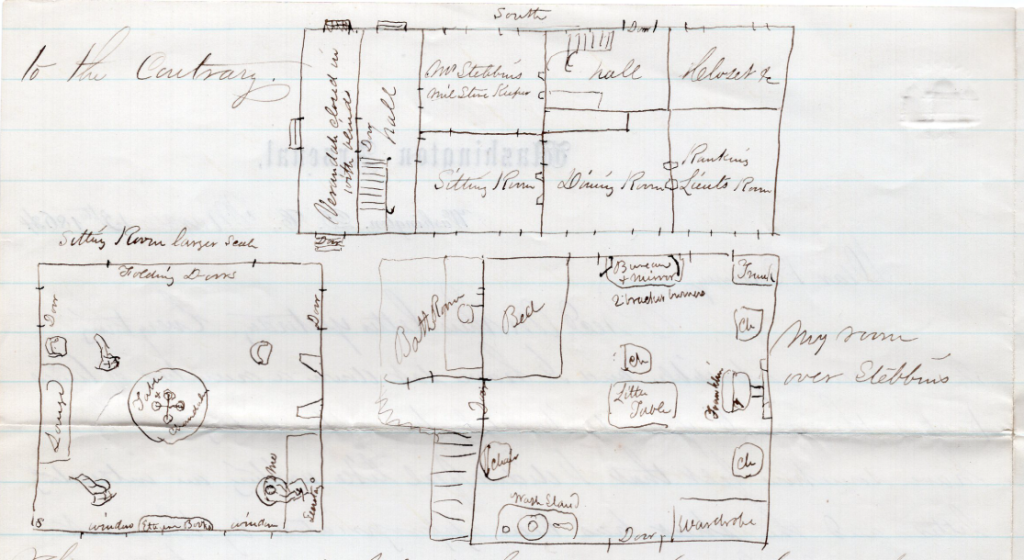 South
to the Contrary.
Verandah closed in
with blinds
Door
hall
Mr Stebbins
Mil Store Keeper
Sitting Room
Door
hall
Dining Room
Closet &c
Ranking
Lieuts Room
Washington Arsenal,
Sitting Room larger scale
Folding Doors
Door
Door
Lounge
Table
Chandelier
Me
window
window
Bath Room
Bed
Bureau
& mirror
2 bracket burners
Trunk
Ch
Ch
Little
Table
Franklin
Ch
Chair
Wash Stand
Door
Wardrobe
Door
My room
over Stebbins